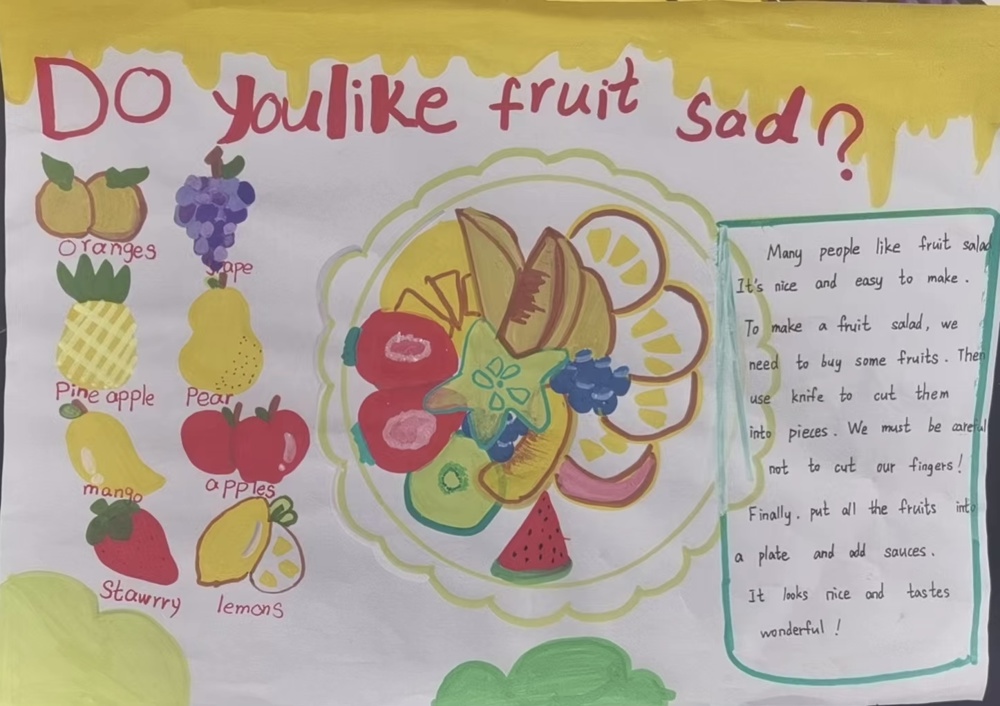 Do you like fruit sad?
Oranges
grape
Pine apple
Pear
mango
apples
Stawrry
lemons
Many people like fruit salad
It's nice and easy to make.
To make a fruit salad, we
need to buy some fruits. Then
use knife to cut them
into pieces. We must be careful
not to cut our fingers!
Finally. put all the fruits into
a plate and add sauces.
It looks nice and tastes
wonderful!